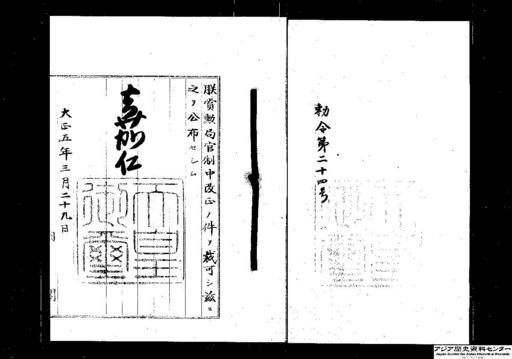 勅令第二十四号
朕賞勲局官制中改正ノ件ヲ裁可シ茲ニ
之ヲ公布セシム
嘉仁
天皇御璽
大正五年三月二十九日
アジア歴史資料センター
Japan Center for Asian Historical Records